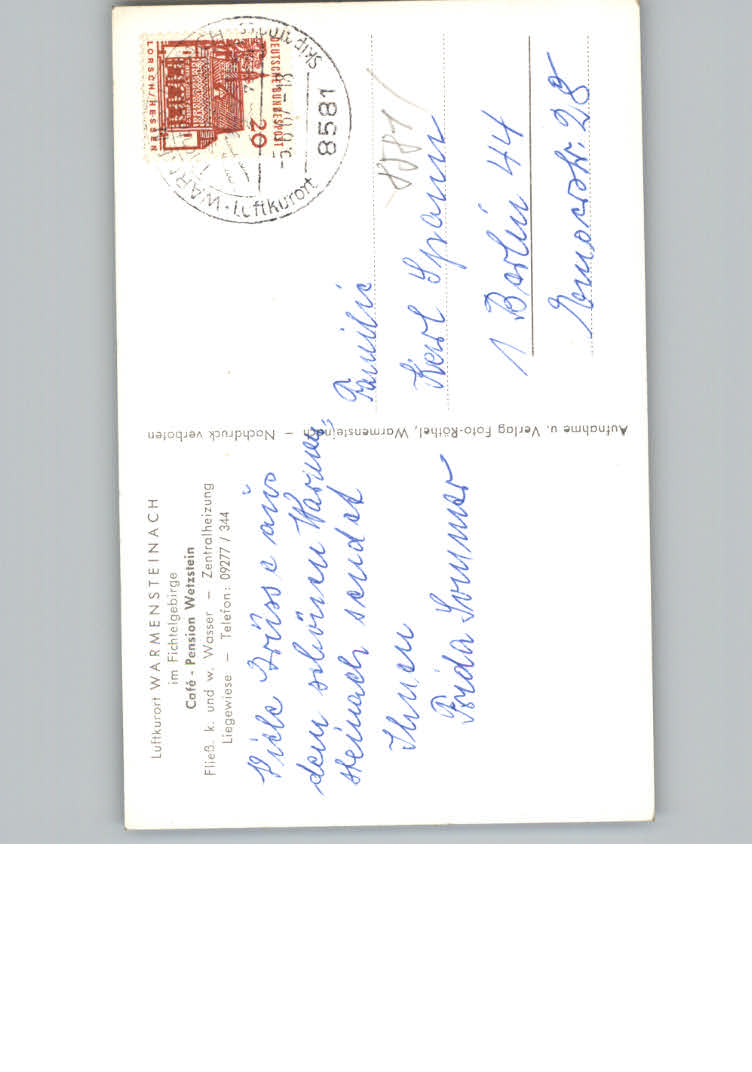 Luftkurort WARMENSTEINACH
im Fichtelgebirge
Café - Pension Wetzstein
Fließ. k. und w. Wasser – Zentralheizung
Liegewiese – Telefon: 09277 / 344
Viele Grüsse aus
dem schönen Warmen=
steinach sendet
Ihnen
Frida Sommer
Aufnahme u. Verlag Foto-Röthel, Warmensteinach – Nachdruck verboten
DEUTSCHE BUNDESPOST
20
LORSCH/HESSEN
8581
Luftkurort
8581
Familie
Karl Spann
1 Berlin 44
28